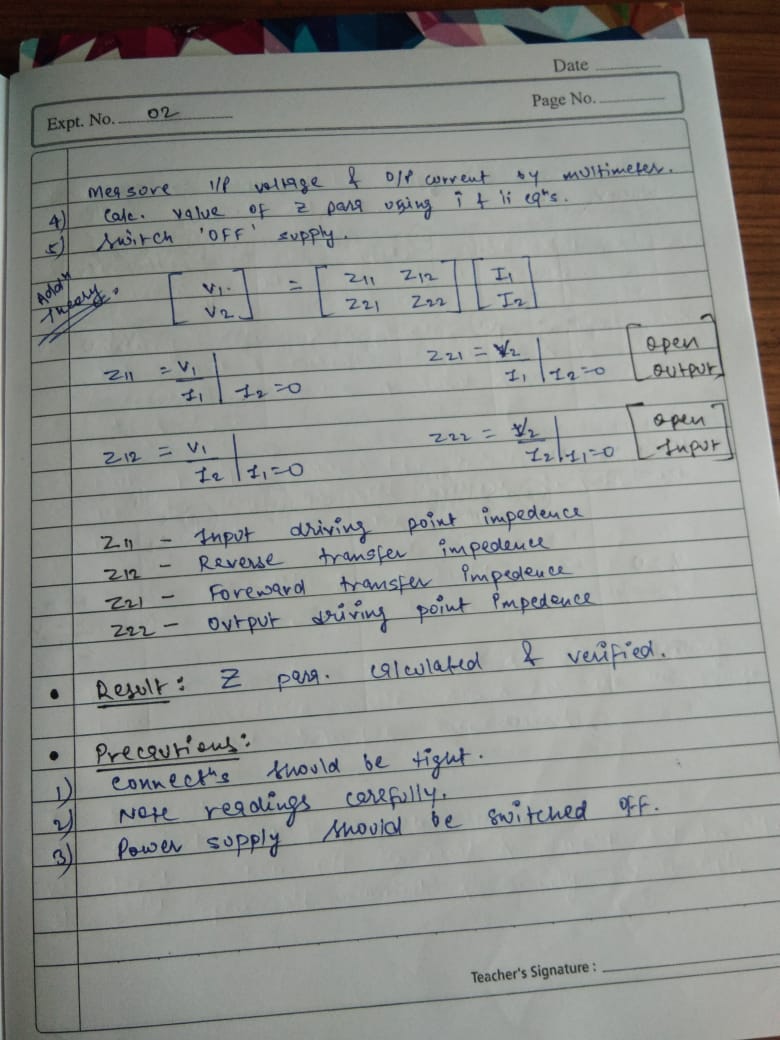 Date
Expt. No. 02
Page No.
Measore I/P voltage & O/P current by multimeter.
4) Calc. value of Z para using i & ii eqⁿs.
5) Switch 'OFF' supply.
Addⁿ Theory.
[V1 V2] = [Z11 Z12 Z21 Z22] [I1 I2]
Z11 = V1/I1 | I2=0 Z21 = V2/I1 | I2=0 [open output]
Z12 = V1/I2 | I1=0 Z22 = V2/I2 | I1=0 [open Input]
Z11 - Input driving point impedence
Z12 - Reverse transfer impedence
Z21 - Foreward transfer impedence
Z22 - output driving point impedence
• Result: Z para. calculated & verified.
• Precautions:
1) Connectⁿs should be tight.
2) Note readings carefully.
3) Power supply should be switched off.
Teacher's Signature :